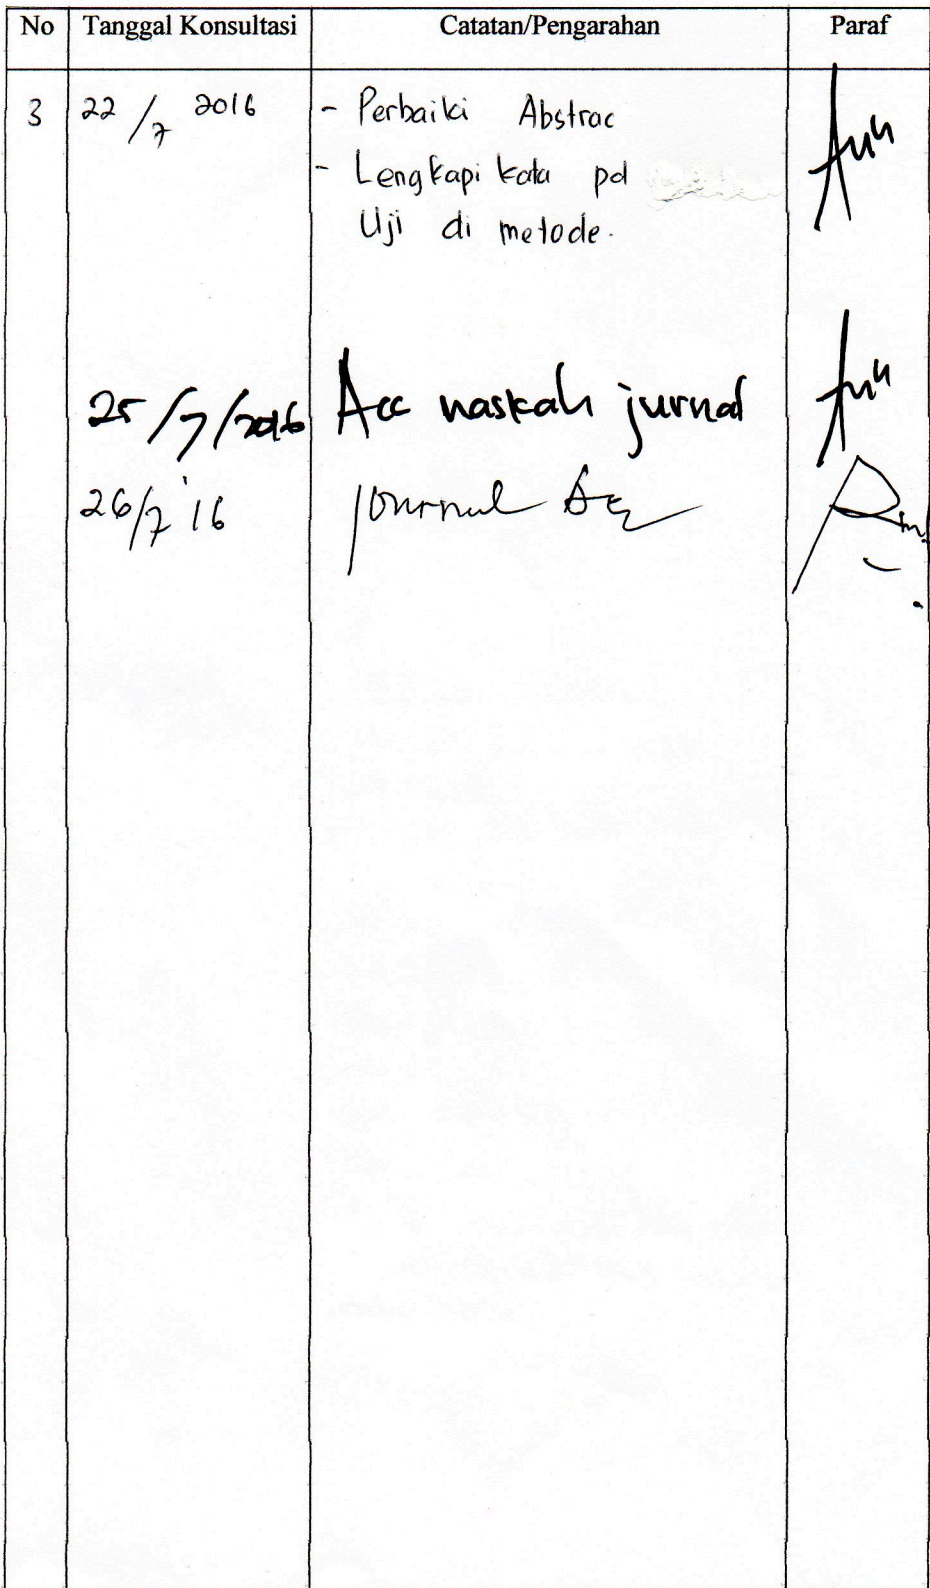 No Tanggal Konsultasi Catatan/Pengarahan Paraf
3 22/7 2016 - Perbaiki Abstrac
- Lengkapi kata pd
Uji di metode.
25/7/2016 Acc naskah jurnal
26/7 '16 journal Acc